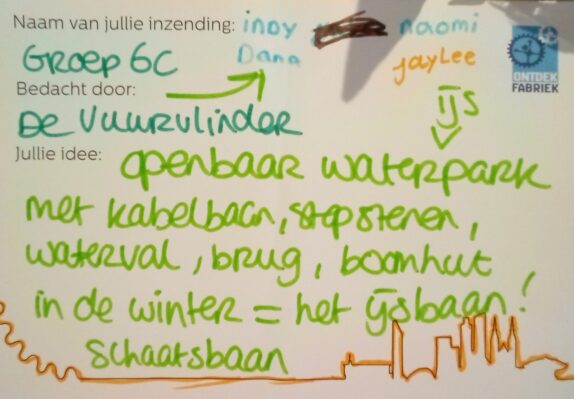 Naam van jullie inzending: indy naomi
Groep 6C Dana jaylee
Bedacht door:
De Vuurvlinder ijs
Jullie idee: openbaar waterpark
met kabelbaan, stepstenen,
waterval, brug, boomhut
in de winter = het ijsbaan!
schaatsbaan
ONTDEK
FABRIEK